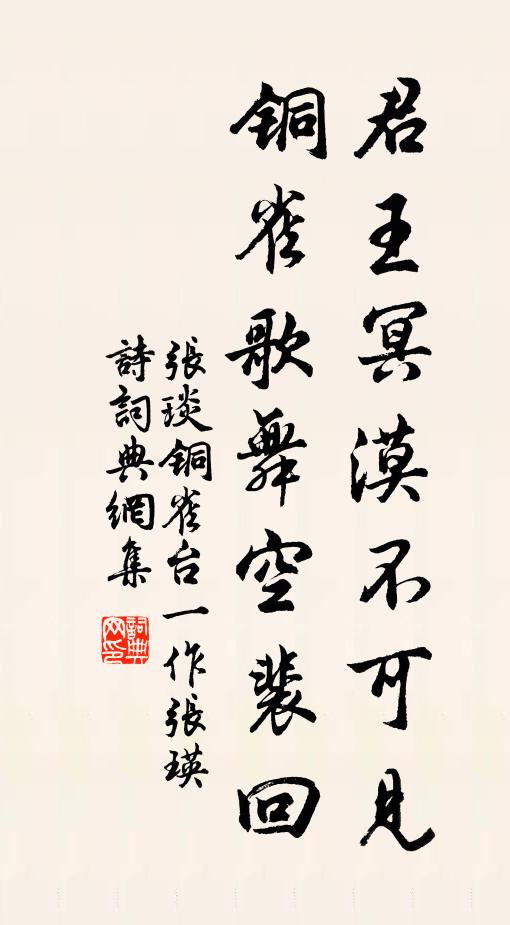 君王冥漠不可見
銅雀歌舞空裴回
張琰銅雀台一作張瑛
詩詞典網集
詞典网印